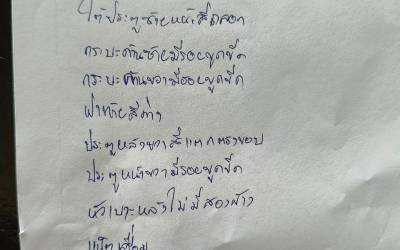 ใต้ประตูซ้ายหน้าสีถลอก
กระบะด้านซ้ายมีรอยขูดขีด
กระบะด้านขวามีรอยขูดขีด
ฝาท้ายสีด่าง
ประตูหลังขวาสีแตกตรงขอบ
ประตูหน้าขวามีรอยขูดขีด
หัวเบาะหลังไม่มีสองข้าง